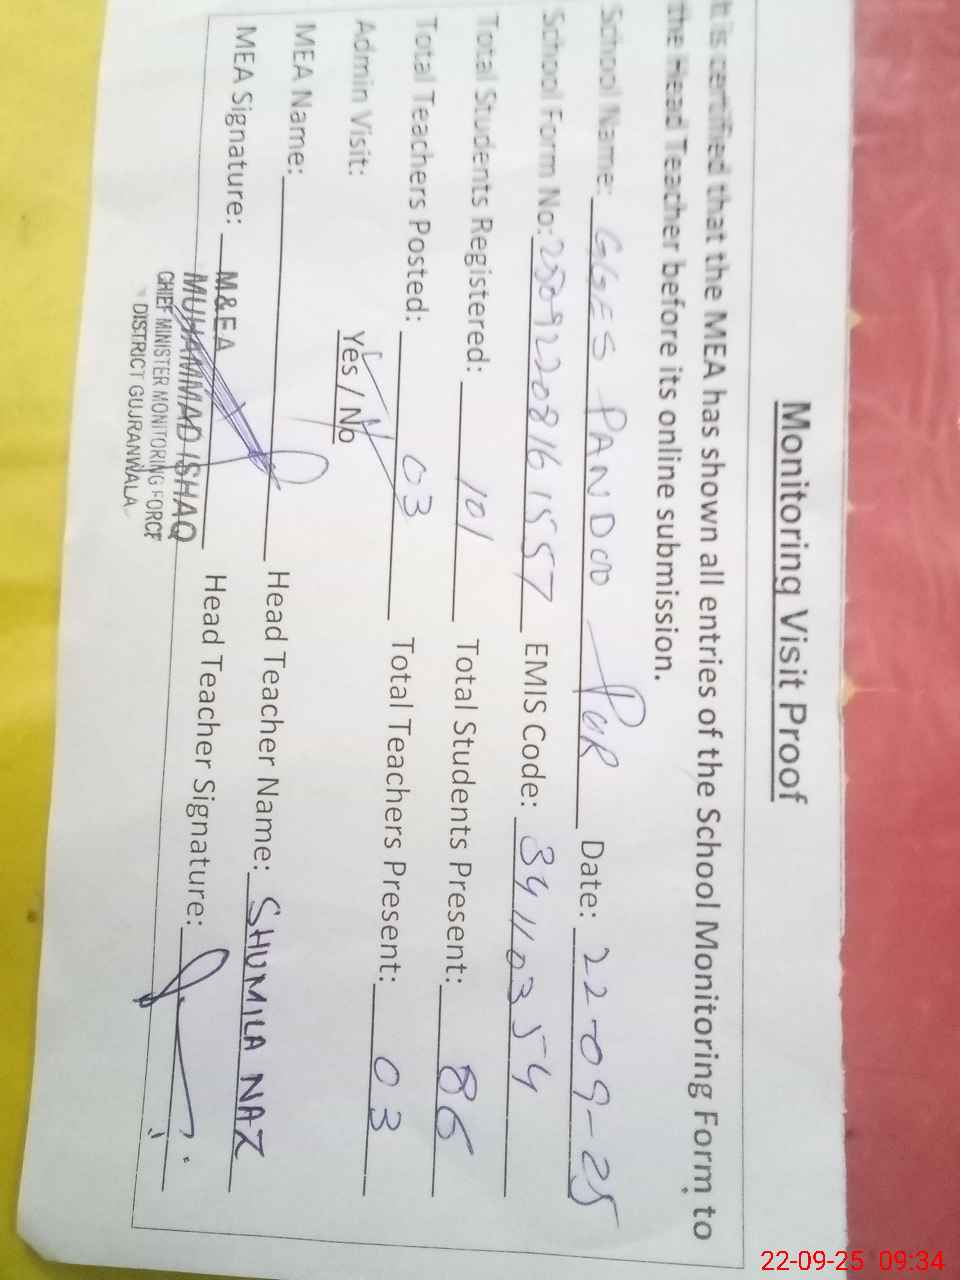 Monitoring Visit Proof
It is certified that the MEA has shown all entries of the School Monitoring Form to
the Head Teacher before its online submission.
School Name: GGES PANDOO PUR Date: 22-09-25
School Form No: 25092208161557 EMIS Code: 34110354
Total Students Registered: 101 Total Students Present: 86
Total Teachers Posted: 03 Total Teachers Present: 03
Admin Visit: Yes / No
MEA Name: Head Teacher Name: SHUMILA NAZ
MEA Signature: Head Teacher Signature:
M&EA
MUHAMMAD ISHAQ
CHIEF MINISTER MONITORING FORCE
DISTRICT GUJRANWALA
22-09-25 09:34